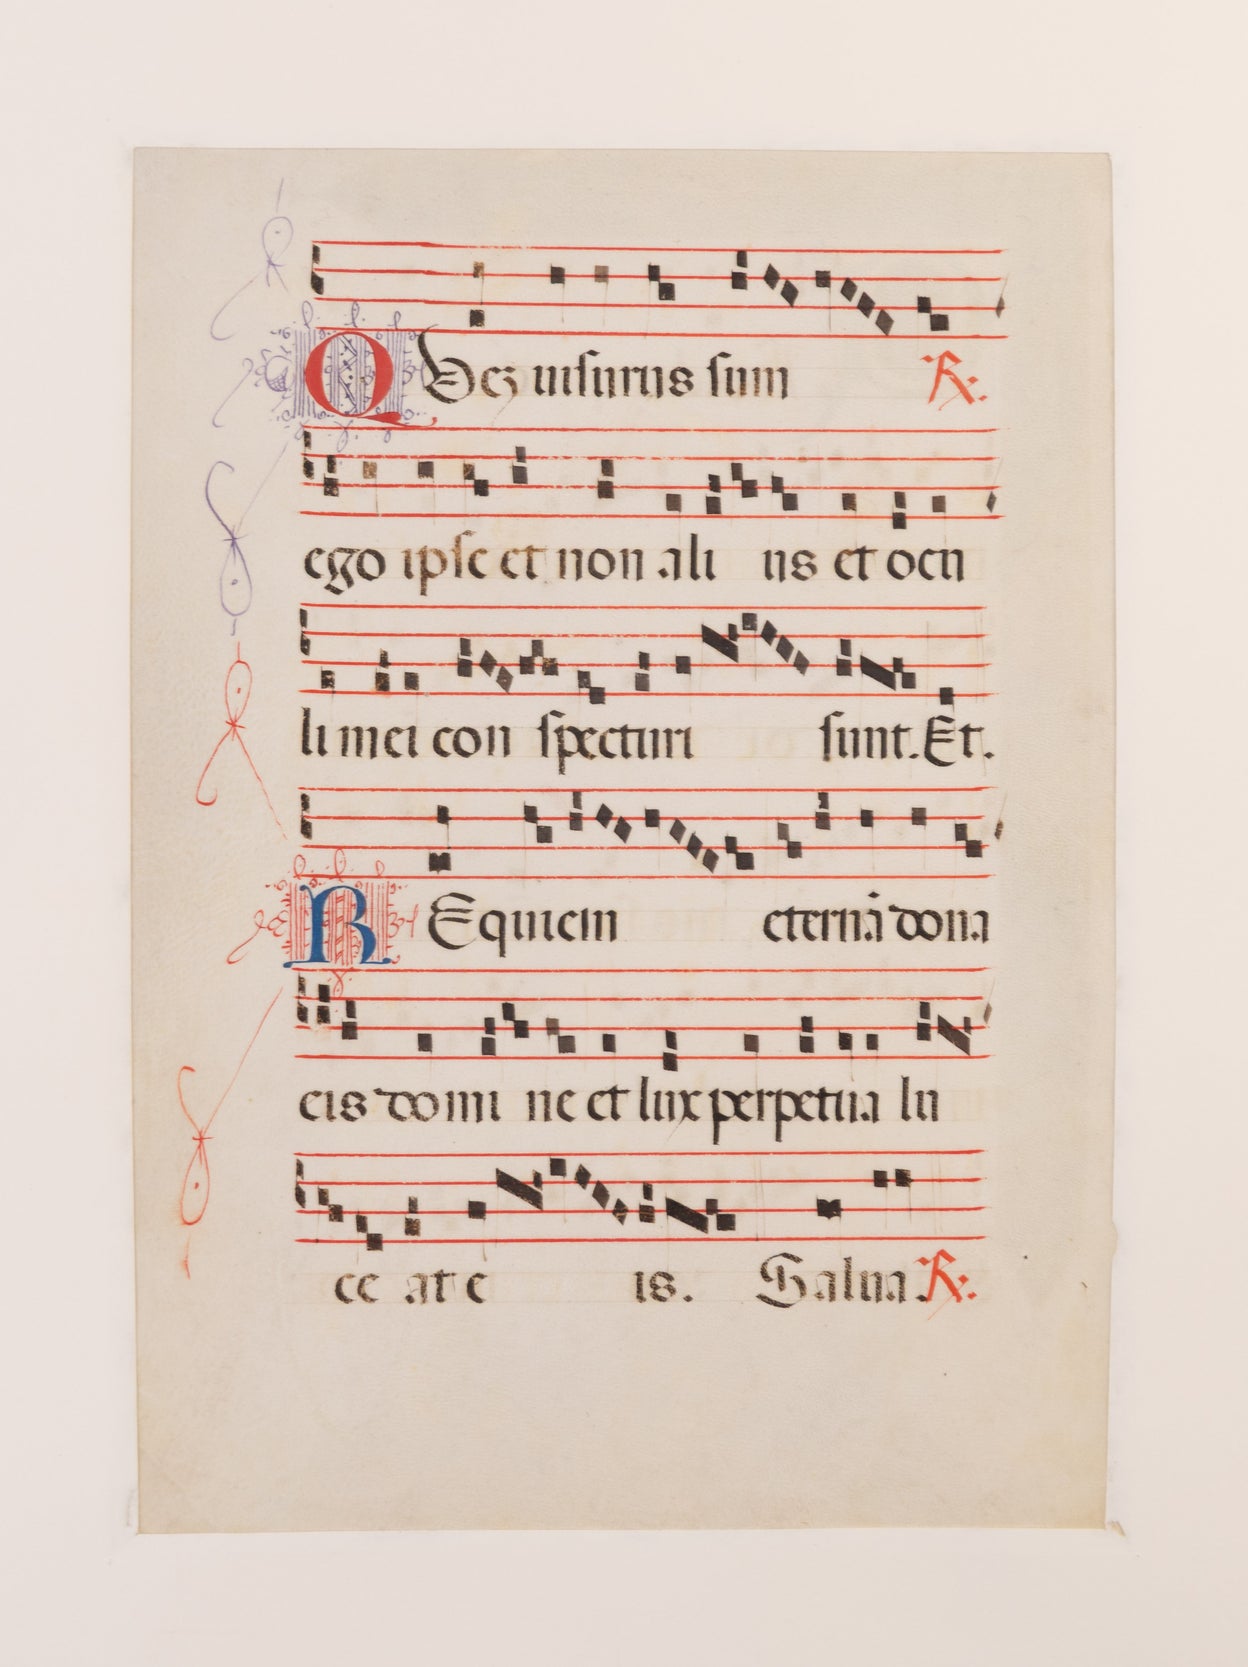 QVez uisurus sum ℟.
ego ipse et non ali us et ocu
li mei con specturi sunt. Et.
REquiem eternā dona
eis domi ne et lux perpetua lu
ce at e is. Salua. ℟.